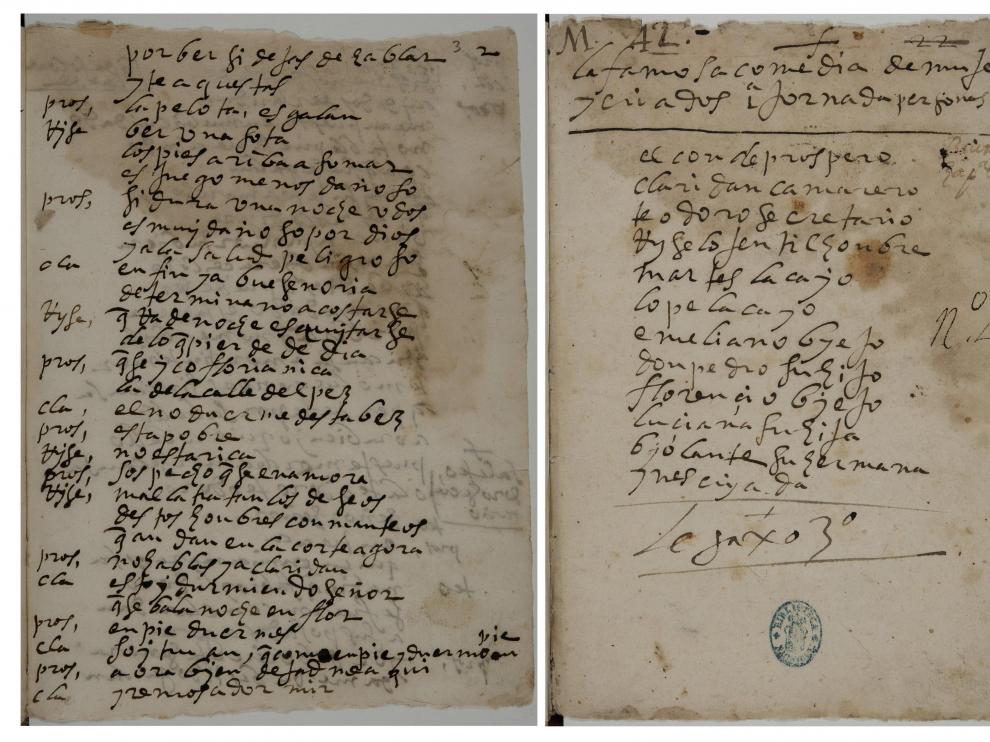 por ber si dejas de hablar 3 2
y te aquestas
pros, la pelota, es galan
ber una sota
los pies ariba a fomar
es juego menos dañoso
pros, si dura una noche u dos
es muy dañoso por dios
y a la salud peligroso
cla en fin ya bueseñoria
determina no acostarse
q̃ de noche es quitarse
de lo q̃ pierde de dia
pros, q̃ se yço florianica
la de la calle del pez
cla, el no duerme desta bez
pros, esta pobre
no esta rica
pros, sospecho q̃ se enamora
mal la tratan los deseos
destos hombres con manteos
q̃ andan en la corte agora
pros, no hablas ya claridan
cla estoy durmiendo señor
q̃ se ba la noche en flor
pros, en pie duermes
cla soy
pros, aora bien dejadme aqui
cla y remos a dormir
M 42.- 22
la famosa comedia de muje
y criados 1ª jornada personas
el conde prospero
claridan camarero
teodoro secretario
jentilhonbre
martes lacayo
lope lacayo
emeliano byejo
don pedro su hijo
florençio byejo
luçiana su hija
byolante su hermana
ynes criada
Legaxo 3º
BIBLIOTECA NACIONAL